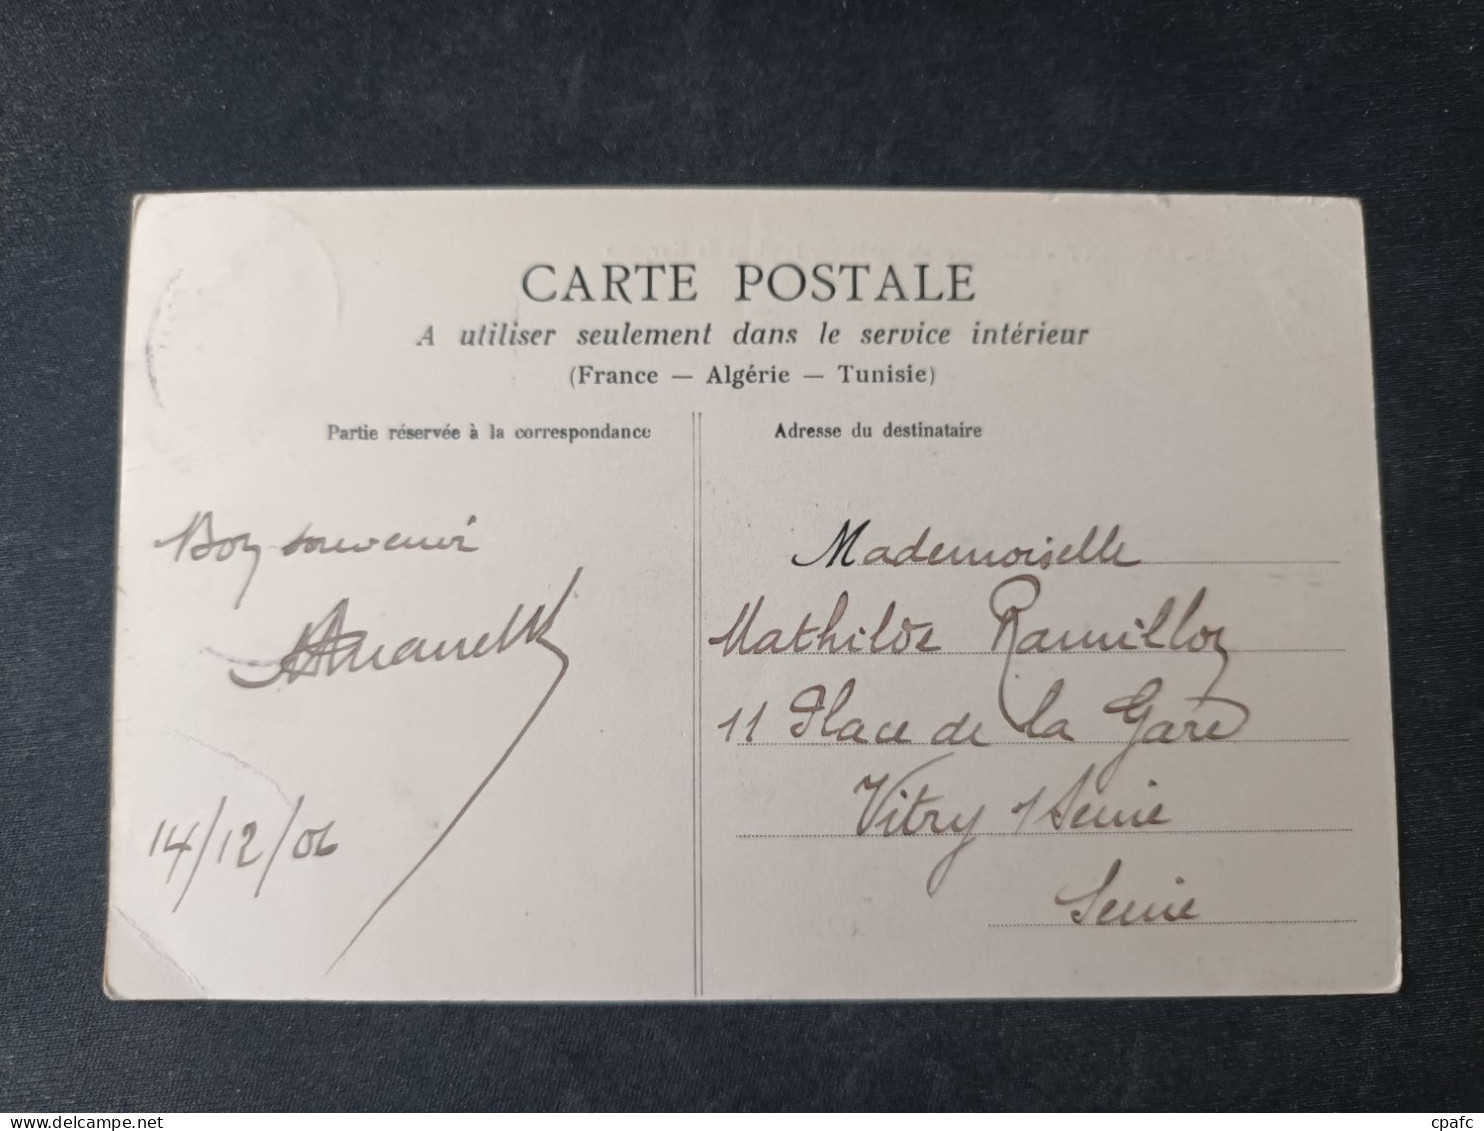 CARTE POSTALE
A utiliser seulement dans le service intérieur
(France — Algérie — Tunisie)
Partie réservée à la correspondance
Adresse du destinataire
Bon souvenir
14/12/06
Mademoiselle
Mathilde Ramillon
11 Place de la Gare
Vitry s/Seine
Seine
www.delcampe.net
cpafc